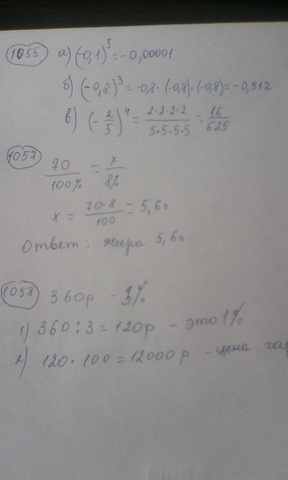 1055 а) (-0,1)⁵ = -0,00001
б) (-0,8)³ = -0,8 · (-0,8) · (-0,8) = -0,512
в) (-2/5)⁴ = 2·2·2·2/5·5·5·5 = 16/625
1057
70/100% = x/8%
x = 70·8/100 = 5,6 г
Ответ: жира 5,6 г.
1058 360р - 3%
1) 360 : 3 = 120р - это 1%
2) 120 · 100 = 12000р - цена гар